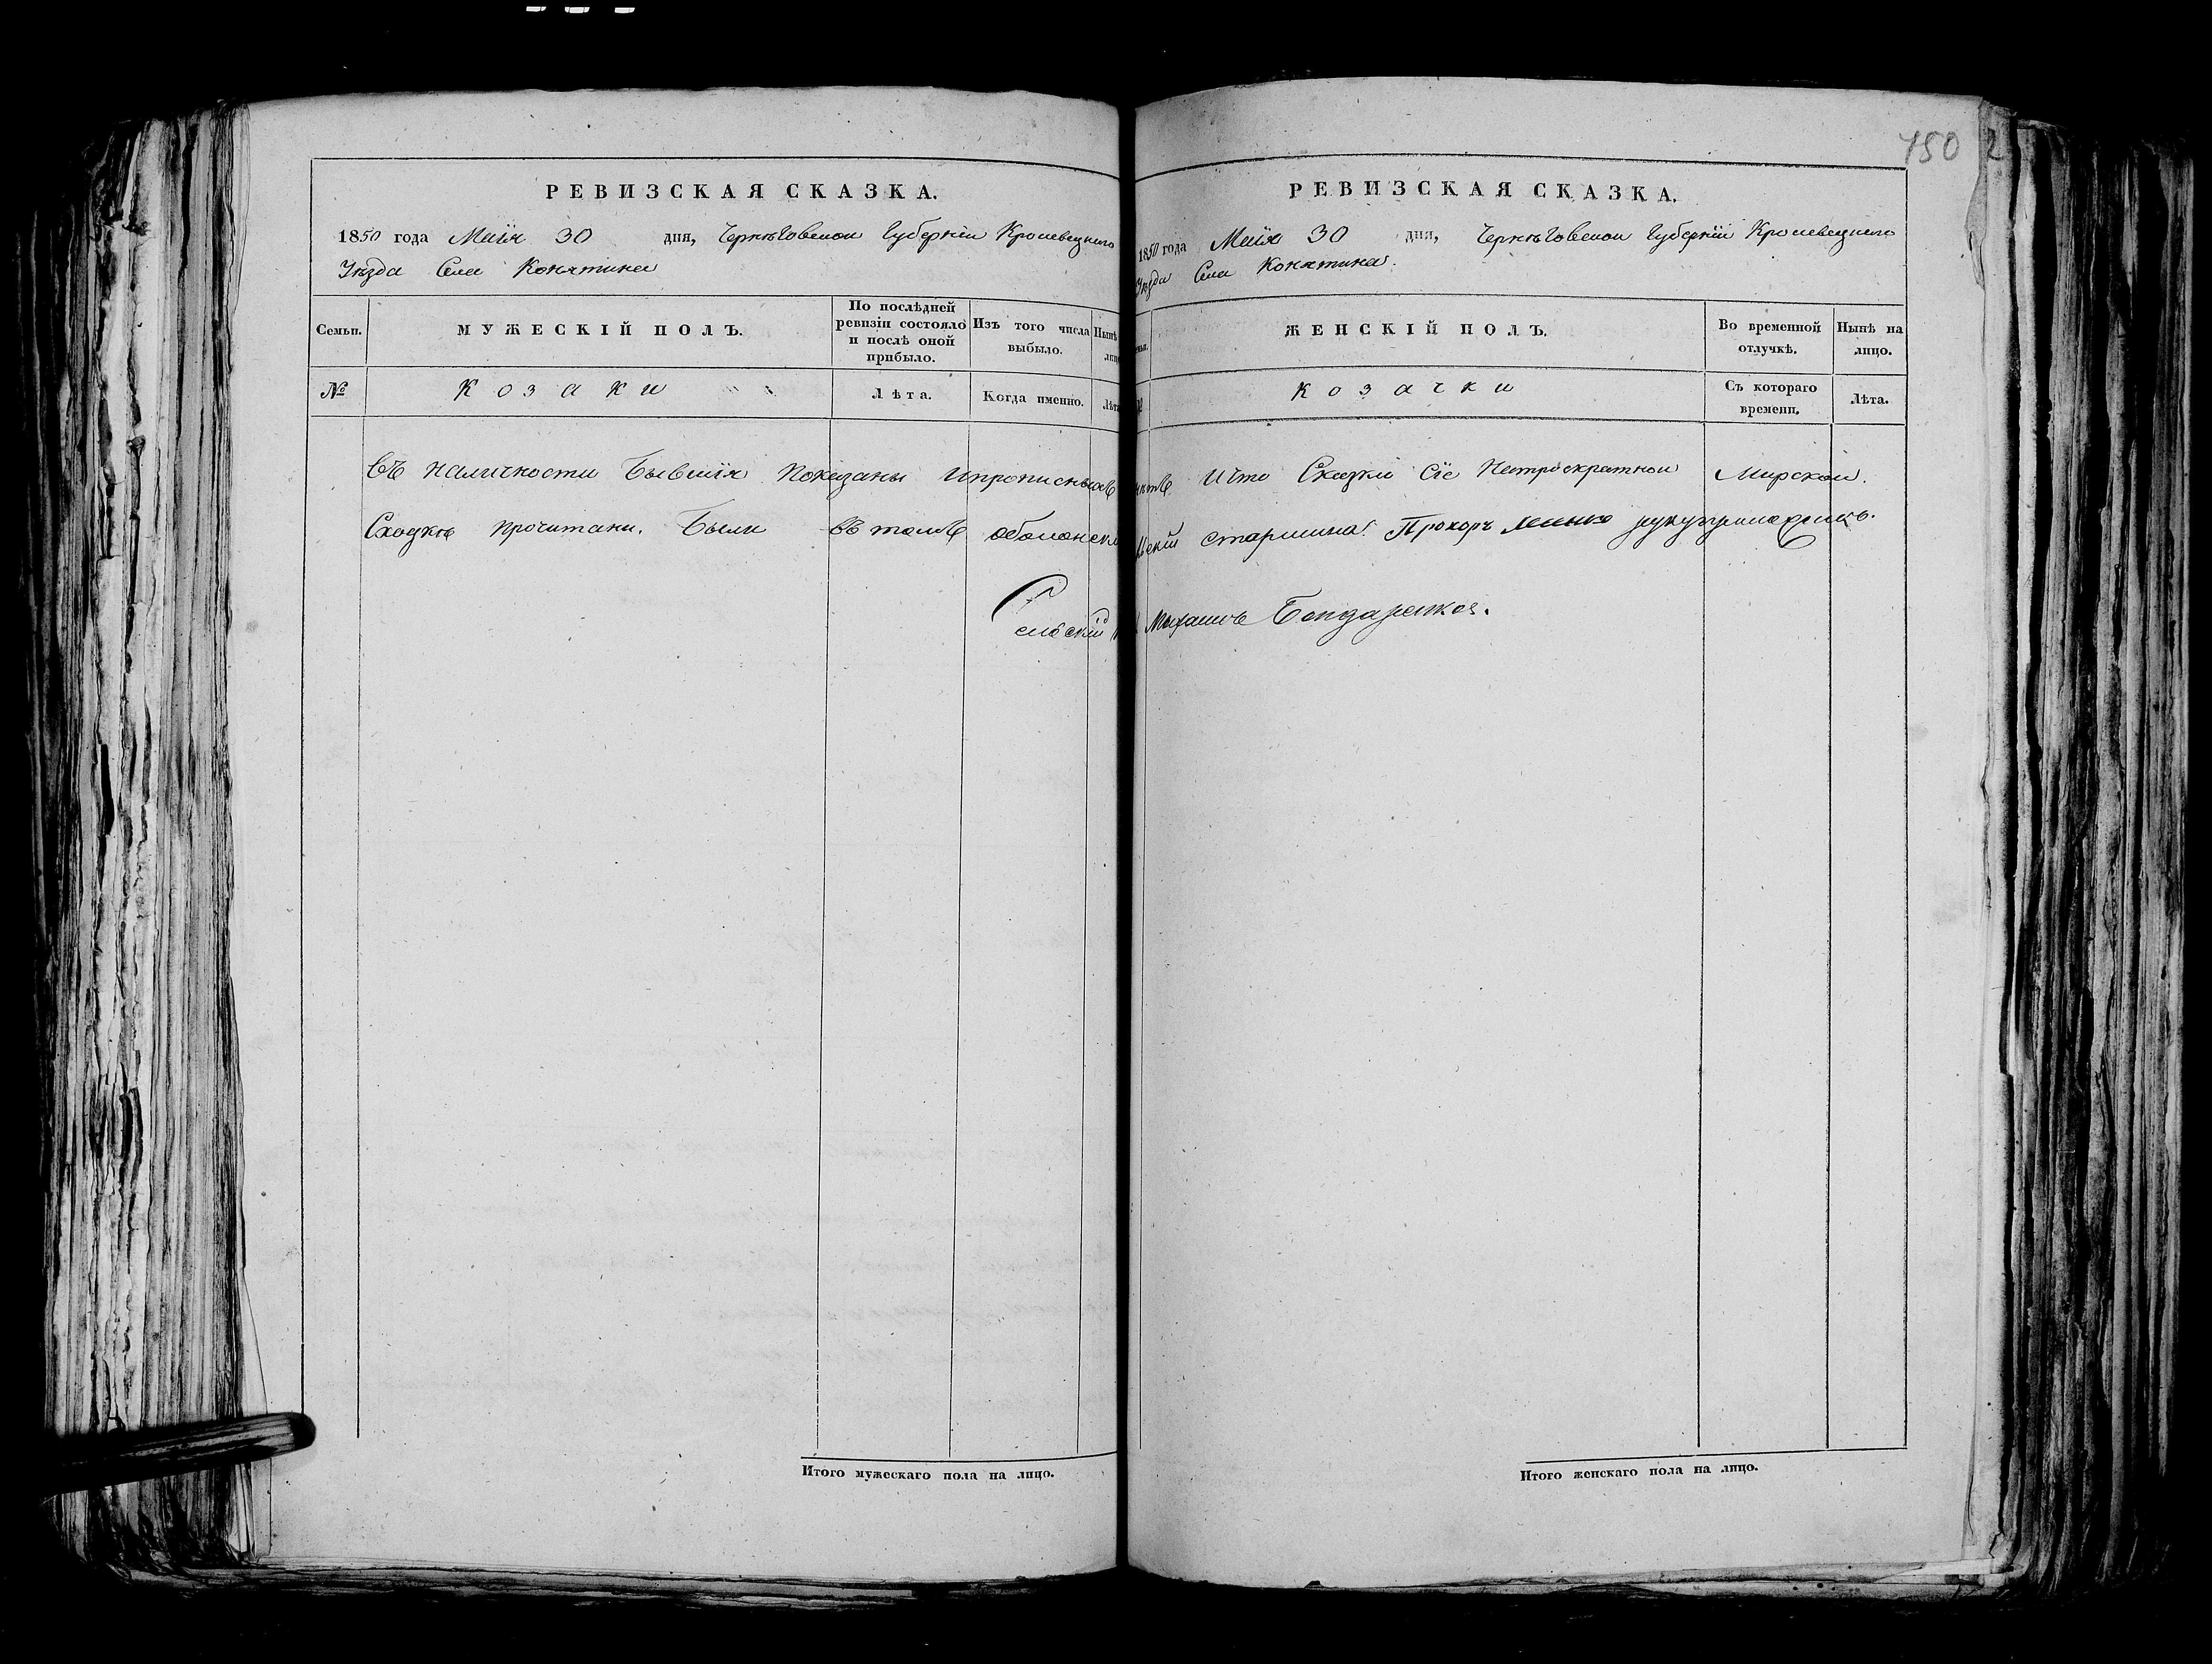 РЕВИЗСКАЯ СКАЗКА.
1850 года Маія 30 дня, Чернѣговской Губерніи Кролевецкого
Уѣзда Села Конятина
Семьи.
МУЖЕСКІЙ ПОЛЪ.
По послѣдней ревизіи состояло и послѣ оной прибыло.
Изъ того числа выбыло.
Нынѣ
№
Козаки
Лѣта.
Когда именно.
Лѣта
въ наличности бывшія показаны
Сходкѣ прочитани. Были въ томъ
Сельскій
Итого мужескаго пола на лицо.
750
РЕВИЗСКАЯ СКАЗКА.
1850 года Маія 30 дня, Чернѣговской Губерніи Кролевецкого
Уѣзда Села Конятина.
ЖЕНСКІЙ ПОЛЪ.
Во временной отлучкѣ.
Нынѣ на лицо.
Козачки
Съ котораго времени.
Лѣта.
И что Сказки сіе Нетроекратной Мирской.
старшина Прохоръ
Бондаренко.
Итого женскаго пола на лицо.